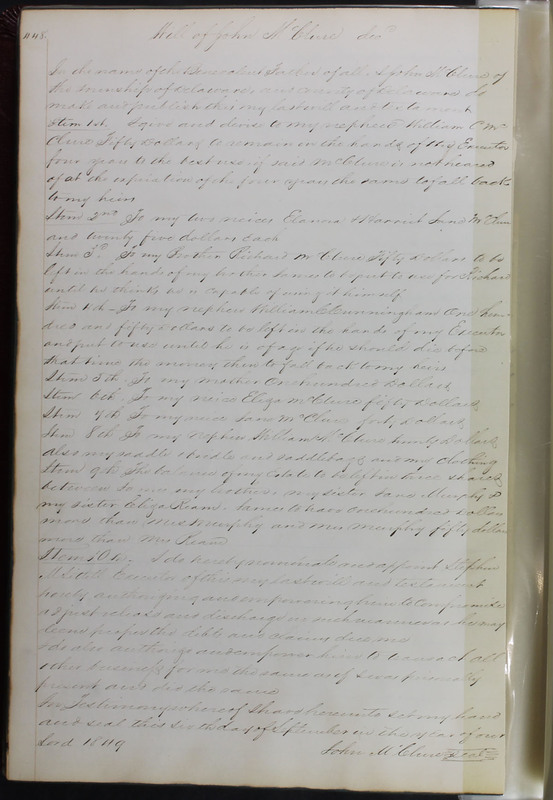 448
Will of John McClure decd
In the name of the Benevolent Father of all, I John McClure of
the township of Delaware and county of Delaware do
make and publish this my last will and testament
Item 1st. I give and devise to my nephew William C Mc
Clure Fifty Dollars to remain in the hands of my Executor
four years to the best use if said McClure is not heard
of at the expiration of the four years the same to fall back
to my heirs
Item 2nd To my two neices Elanora & Harriet McClure
and twenty five dollars each
Item 3d. To my Brother Richard McClure Fifty Dollars to be
left in the hands of my brother James to be put to use for Richard
until he thinks he is capable of using it himself
Item 4th - To my nephew William C Cunningham One hun
dred and fifty Dollars to be left in the hands of my Executor
and put to use until he is of age if he should die before
that time the money then to fall back to my heirs
Item 5th. To my mother One hundred Dollars
Item 6th. To my neice Eliza McClure fifty Dollars
Item 7th To my neice Jane McClure forty Dollars
Item 8th To my nephew William McClure Dollars
also my saddle bridle and saddlebags and my clothing
Item 9th The balance of my estate to be left in three shares
between James my brother my sister Jane Murphy &
my sister Eliza Ream. James to have one hundred dollars
more than Mrs Murphy and Mrs Murphy fifty dollars
more than Mrs Ream
Item 10th. I do hereby nominate and appoint Stephen
Executor of this my last will and testament
hereby authorizing and empowering him to compromise
adjust release and discharge in such manner as he may
deem proper the debts and claims due me
I do also authorize and empower him to transact all
other business for me the same as if I was personally
present and did the same
In Testimony whereof I have hereunto set my hand
and seal this sixth day of September in the year of our
Lord 1849
John McClure Seal